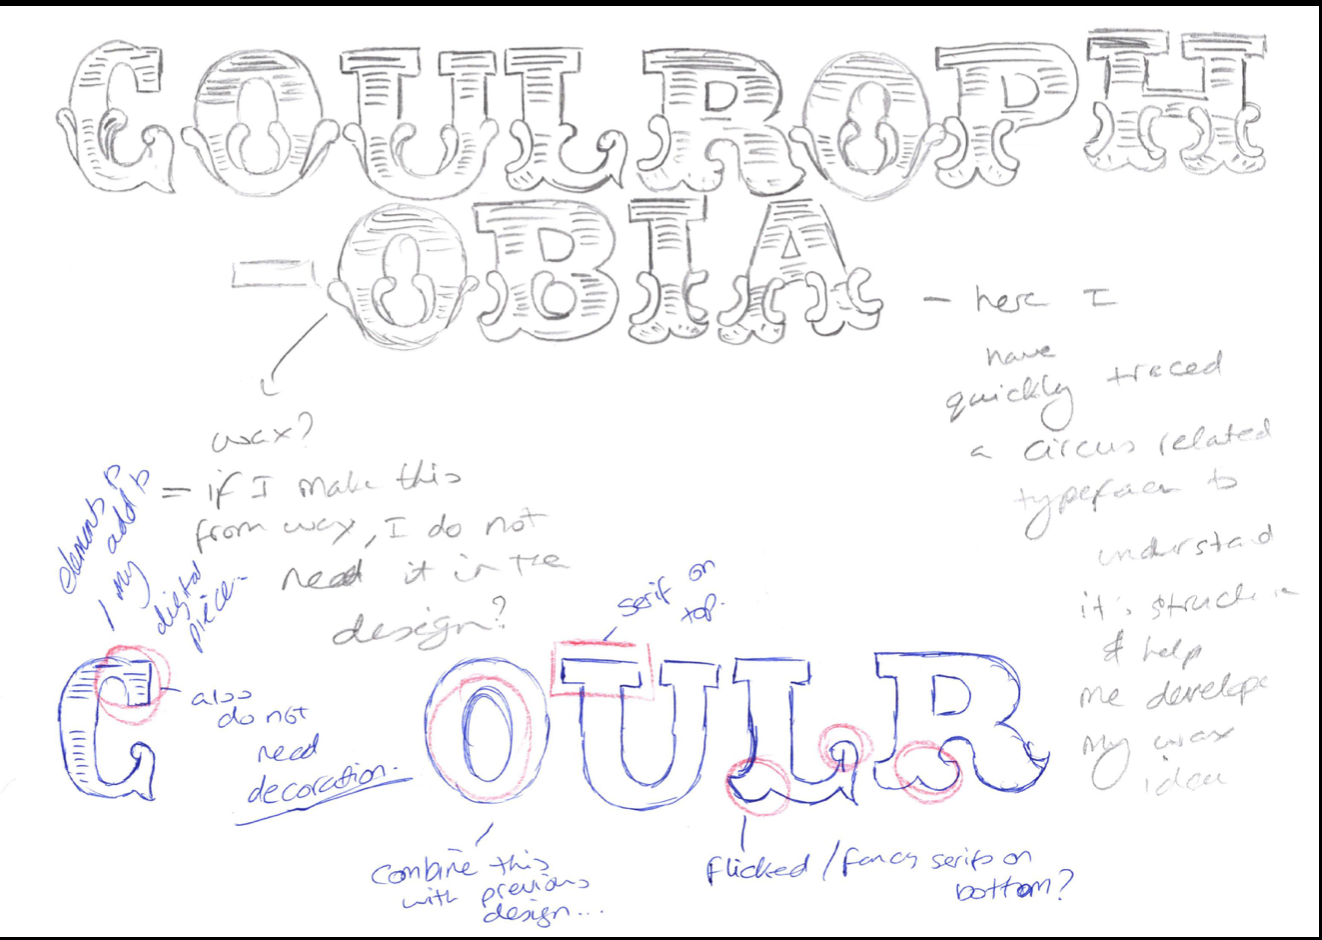 COULROPH
-OBIA
- here I
have
quickly traced
a circus related
typeface to
understand
it's structure
& help
me develope
my wax
idea
wax?
= if I make this
from wax, I do not
need it in the
design?
elements to
add to
my
digital
piece-
serif on
top.
C OULR
also
do not
need
decoration.
combine this
with previous
design...
flicked/fancy serifs on
bottom?